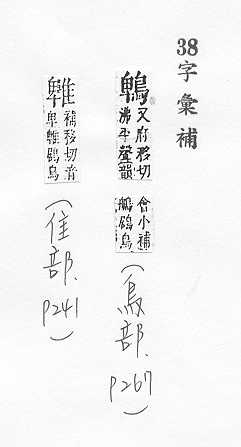 38字彙補
鵯又府移切
沸平聲韻
會小補
鵯鶋鳥
(鳥部.P267)
補移切音
卑鶋鳥
(隹部.P241)